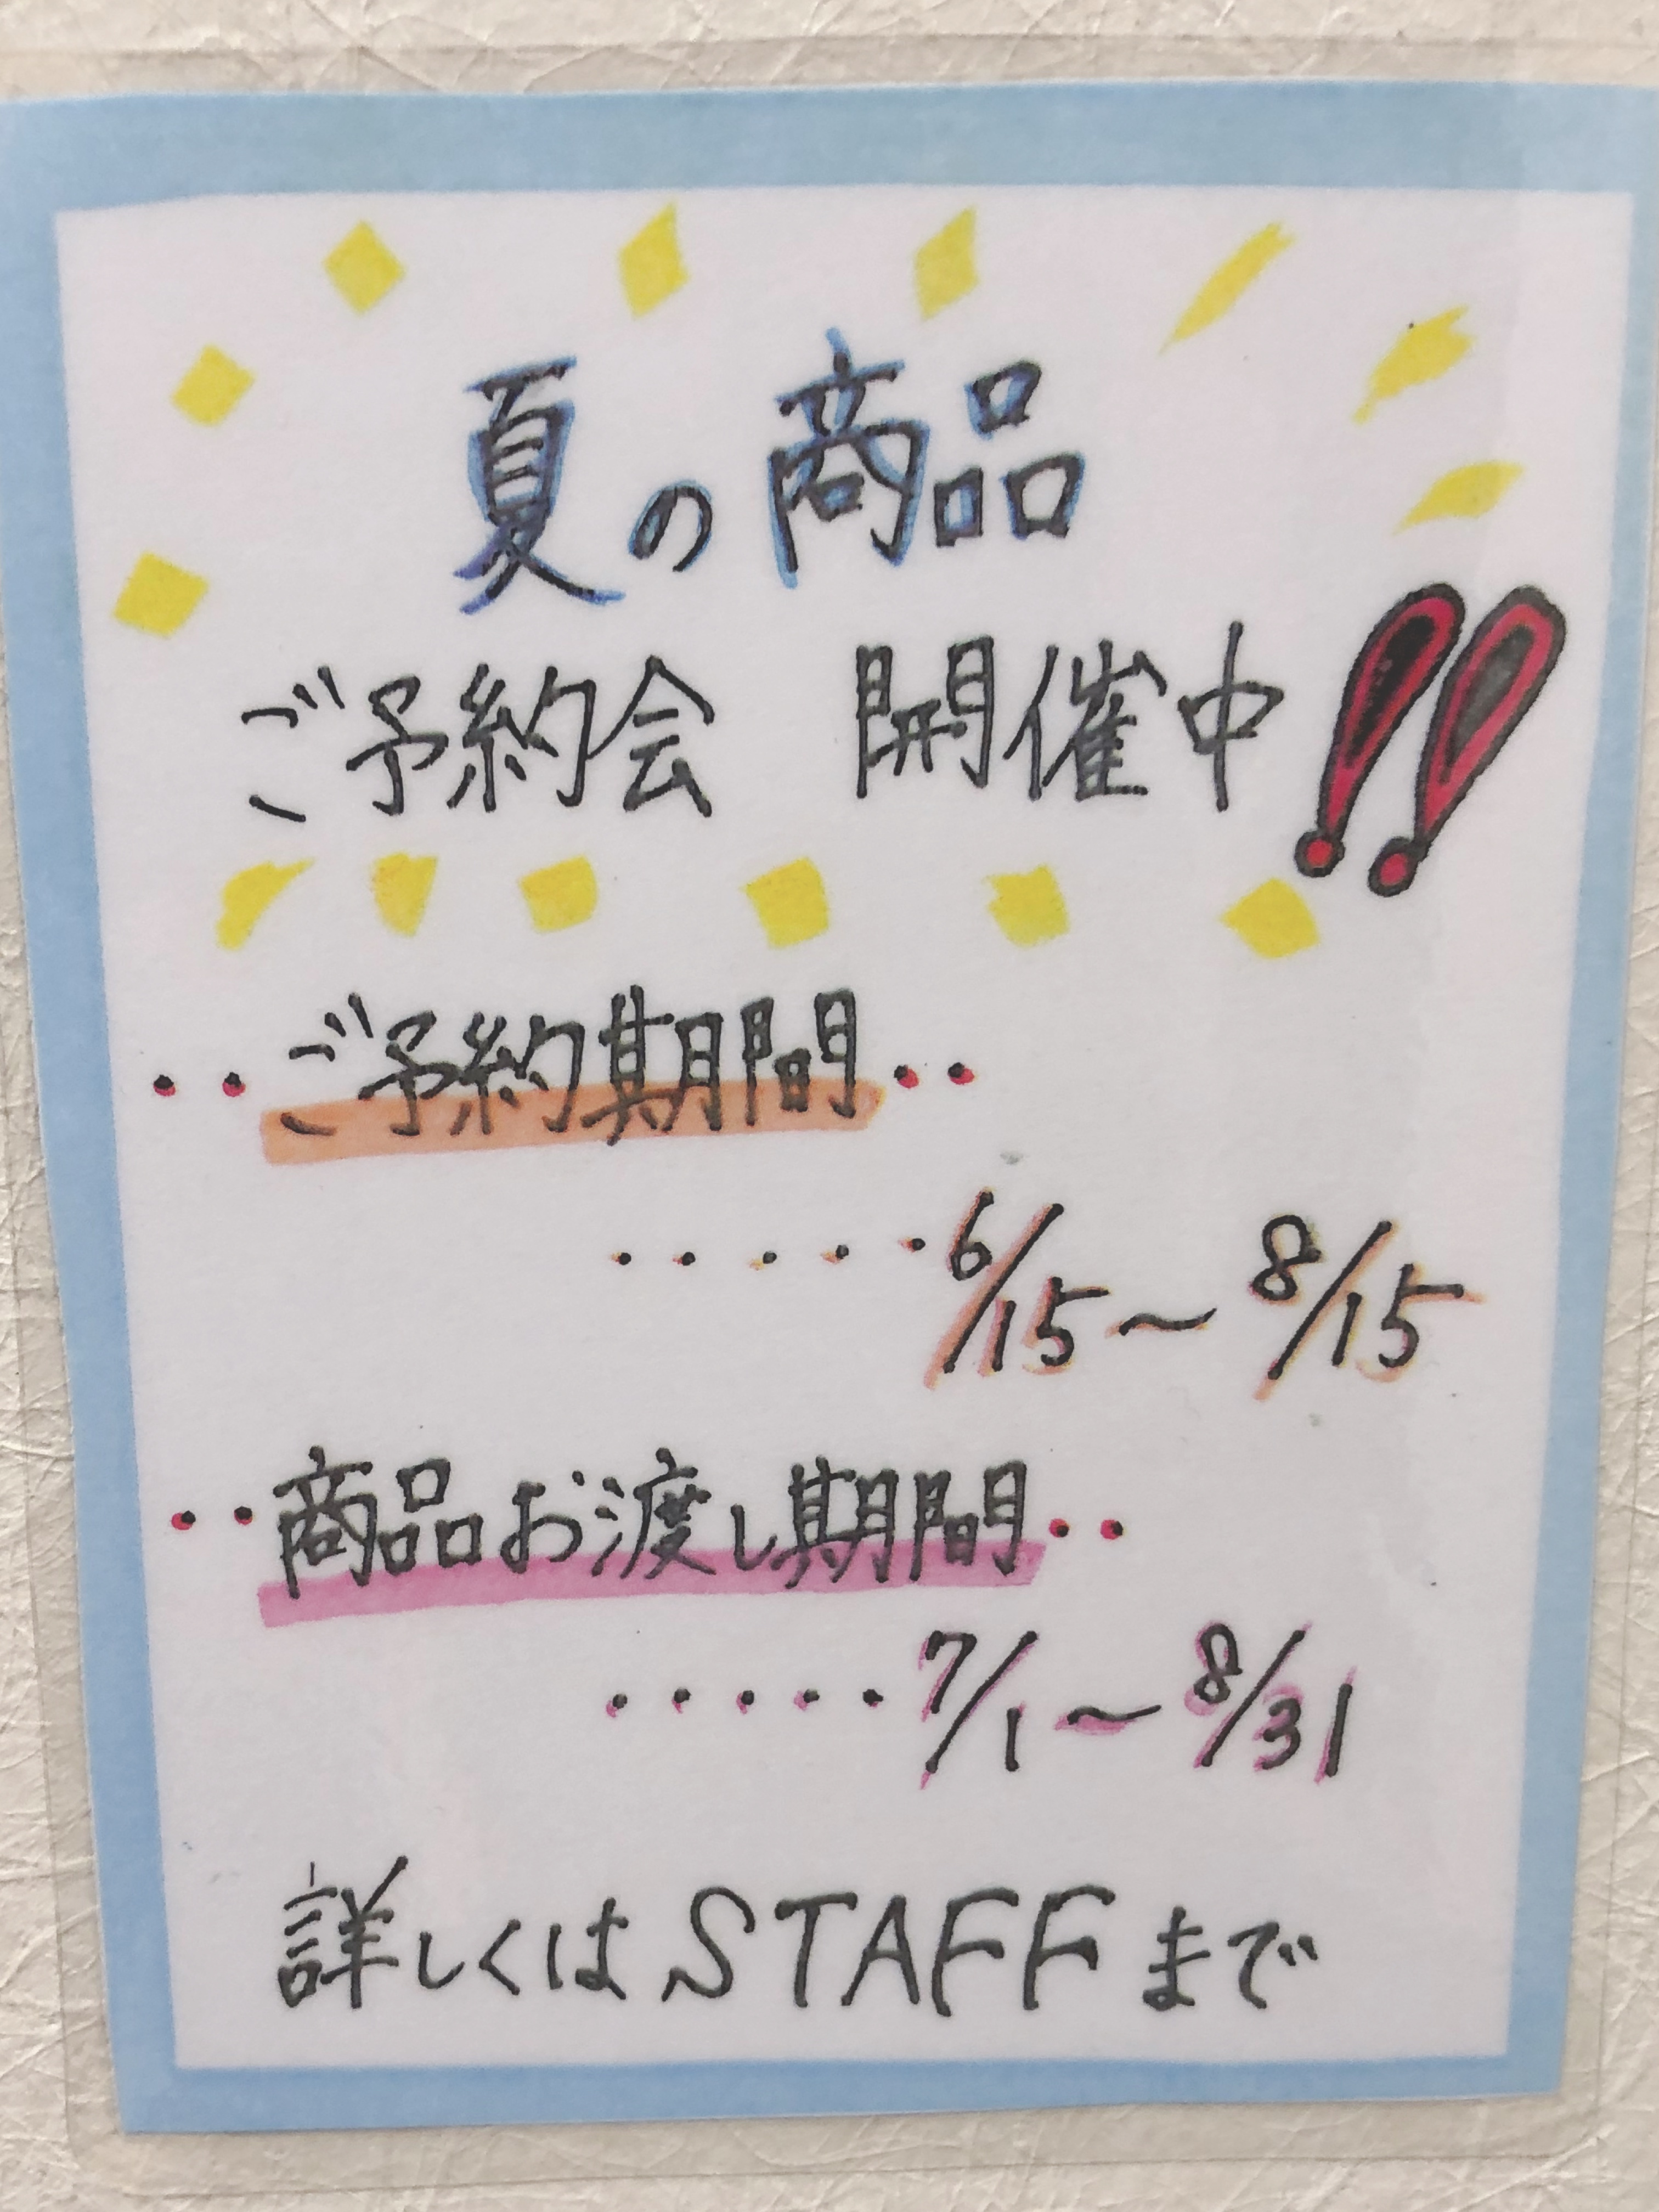 夏の商品
ご予約会 開催中!!
・・ご予約期間・・
・・・・・6/15〜8/15
・・商品お渡し期間・・
・・・・・7/1〜8/31
詳しくはSTAFFまで